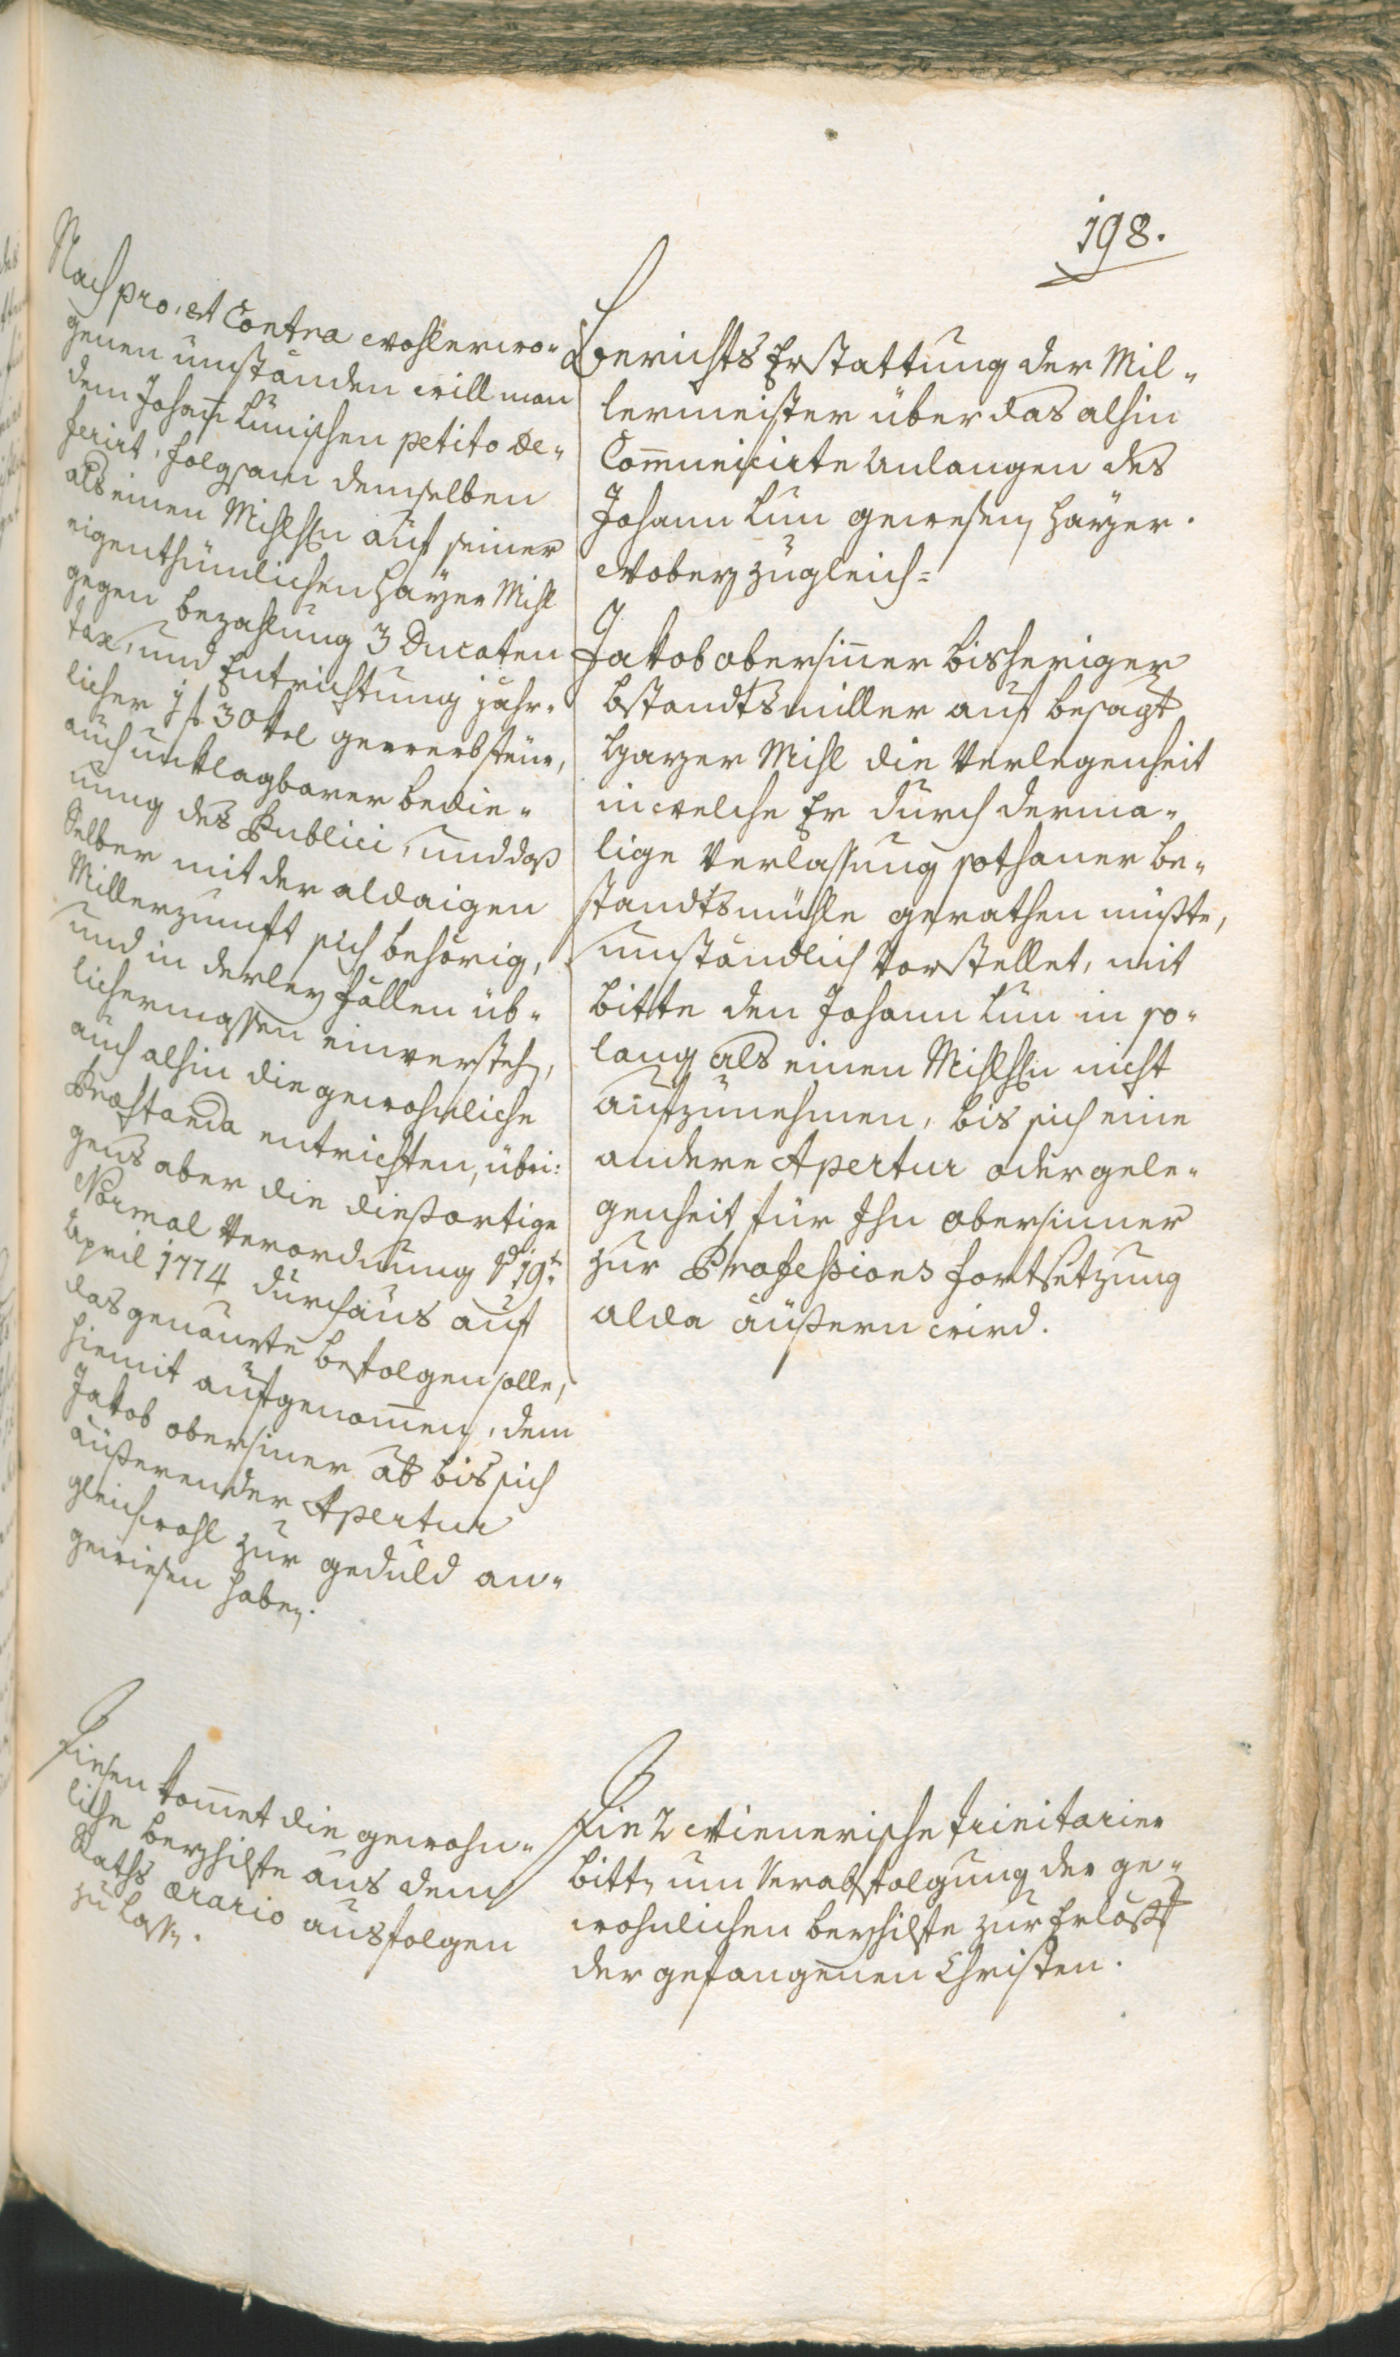 198.
Nach pro, et Contra wohlerwo-
genen umständen will man
dem Johañ Lunischen petito de-
ferirt, folgsam demselben
als einen Mihlhln auf seiner
eigenthümlichen Hayer Mihl
gegen bezahlung 3 Ducaten
tax, und Entrichtung jähr-
licher 1 f 30 kr gewerbsteur,
auch unklagbarer bedie-
nung des Publici, und daß
Selber mit der aldaigen
Millerzunft sich behörig,
und in derley fällen üb-
lichermassen einversteh,
auch alhin die gewohnliche
Praestanda entrichten, übri-
gens aber die diesortige
Normal Verordnung dd 19t
April 1774 durchaus auf
das genaueste befolgen solle,
hiemit aufgenom̄en, dem
Jakob obersiner ab bis sich
äusserender Apertur
gleichwohl zur geduld an-
gewiesen haben.
Berichts Erstattung der Mil-
lermeister über das alhin
Com̄unicirte Anlangen des
Johann Lun gewesen Hayer.
wobey zugleich=
Jakob obersiñer bisheriger
bstandtsmiller auf besagt
Hayer Mihl die Verlegenheit
in welche Er durch derma-
lige Verlassung sothaner be-
standtsmühle gerathen müste,
umständlich Vorstellet, mit
bitte den Johann Lun in so-
lang als einen Mihlhln nicht
aufzunehmen, bis sich eine
andere Apertur oder gele-
genheit für Ihn obersinner
zur Professions fortsetzung
alda äussern wird.
Diesen kom̄et die gewohn-
liche beyhilfe aus dem
Raths ærario ausfolgen
zu lassn.
Die 2 Wienerische trinitarier
bittn um Verabfolgung der ge-
wohnlichen beyhilfe zur Erlösg
der gefangenen Christen.